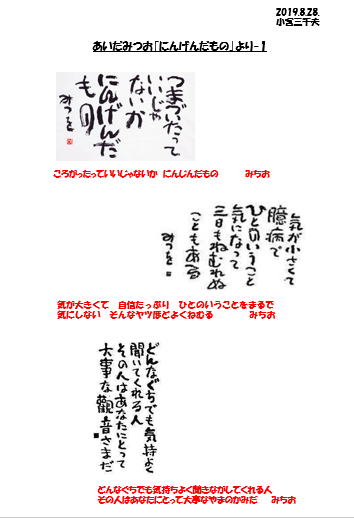 2019.8.28.
小宮三千夫
あいだみつお「にんげんだもの」より-1
つまづいたって
いいじゃ
ないか
にんげんだ
もの
みつを
ころがったっていいじゃないか にんじんだもの みちお
気が小さくて
臆病で
ひとのいうこと
気になって
三日もねむれぬ
こともある
みつを
気が大きくて 自信たっぷり ひとのいうことをまるで
気にしない そんなヤツほどよくねむる みちお
どんなぐちでも気持よく
聞いてくれる人
その人はあなたにとって
大事な観音さまだ
どんなぐちでも気持ちよく聞きながしてくれる人
その人はあなたにとって大事なやまのかみだ みちお